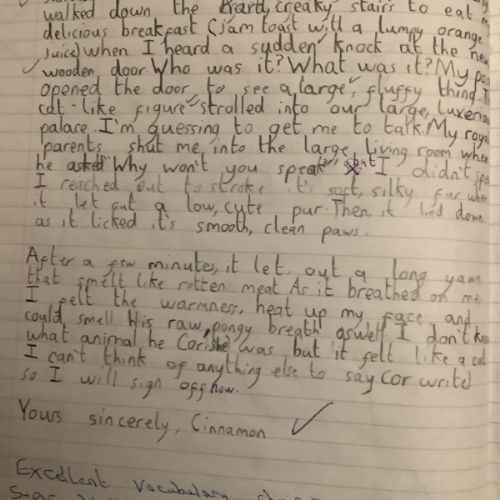 walked down the hard, creaky stairs to eat
delicious breakfast (jam toast with a lumpy orange
juice) when I heard a sudden knock at the new
wooden door. Who was it? What was it? My
opened the door to see a large, fluffy thing
cat-like figure strolled into our large,
palace. I'm guessing to get me to talk. My royal
parents shut me into the large living room when
he asked Why won't you speak but I didn't
I reached out to stroke it's soft, silky fur
it let out a low, cute pur. Then, it lied down
as it licked it's smooth, clean paws.
After a few minutes, it let out a long yawn
that smelt like rotten meat. As it breathed on me
I felt the warmness, heat up my face and
could smell His raw, pongy breath aswell. I don't know
what animal he (or she) was but it felt like a cat
I can't think of anything else to say (or write)
so I will sign off now.
Yours sincerely, Cinnamon
Excellent vocabulary